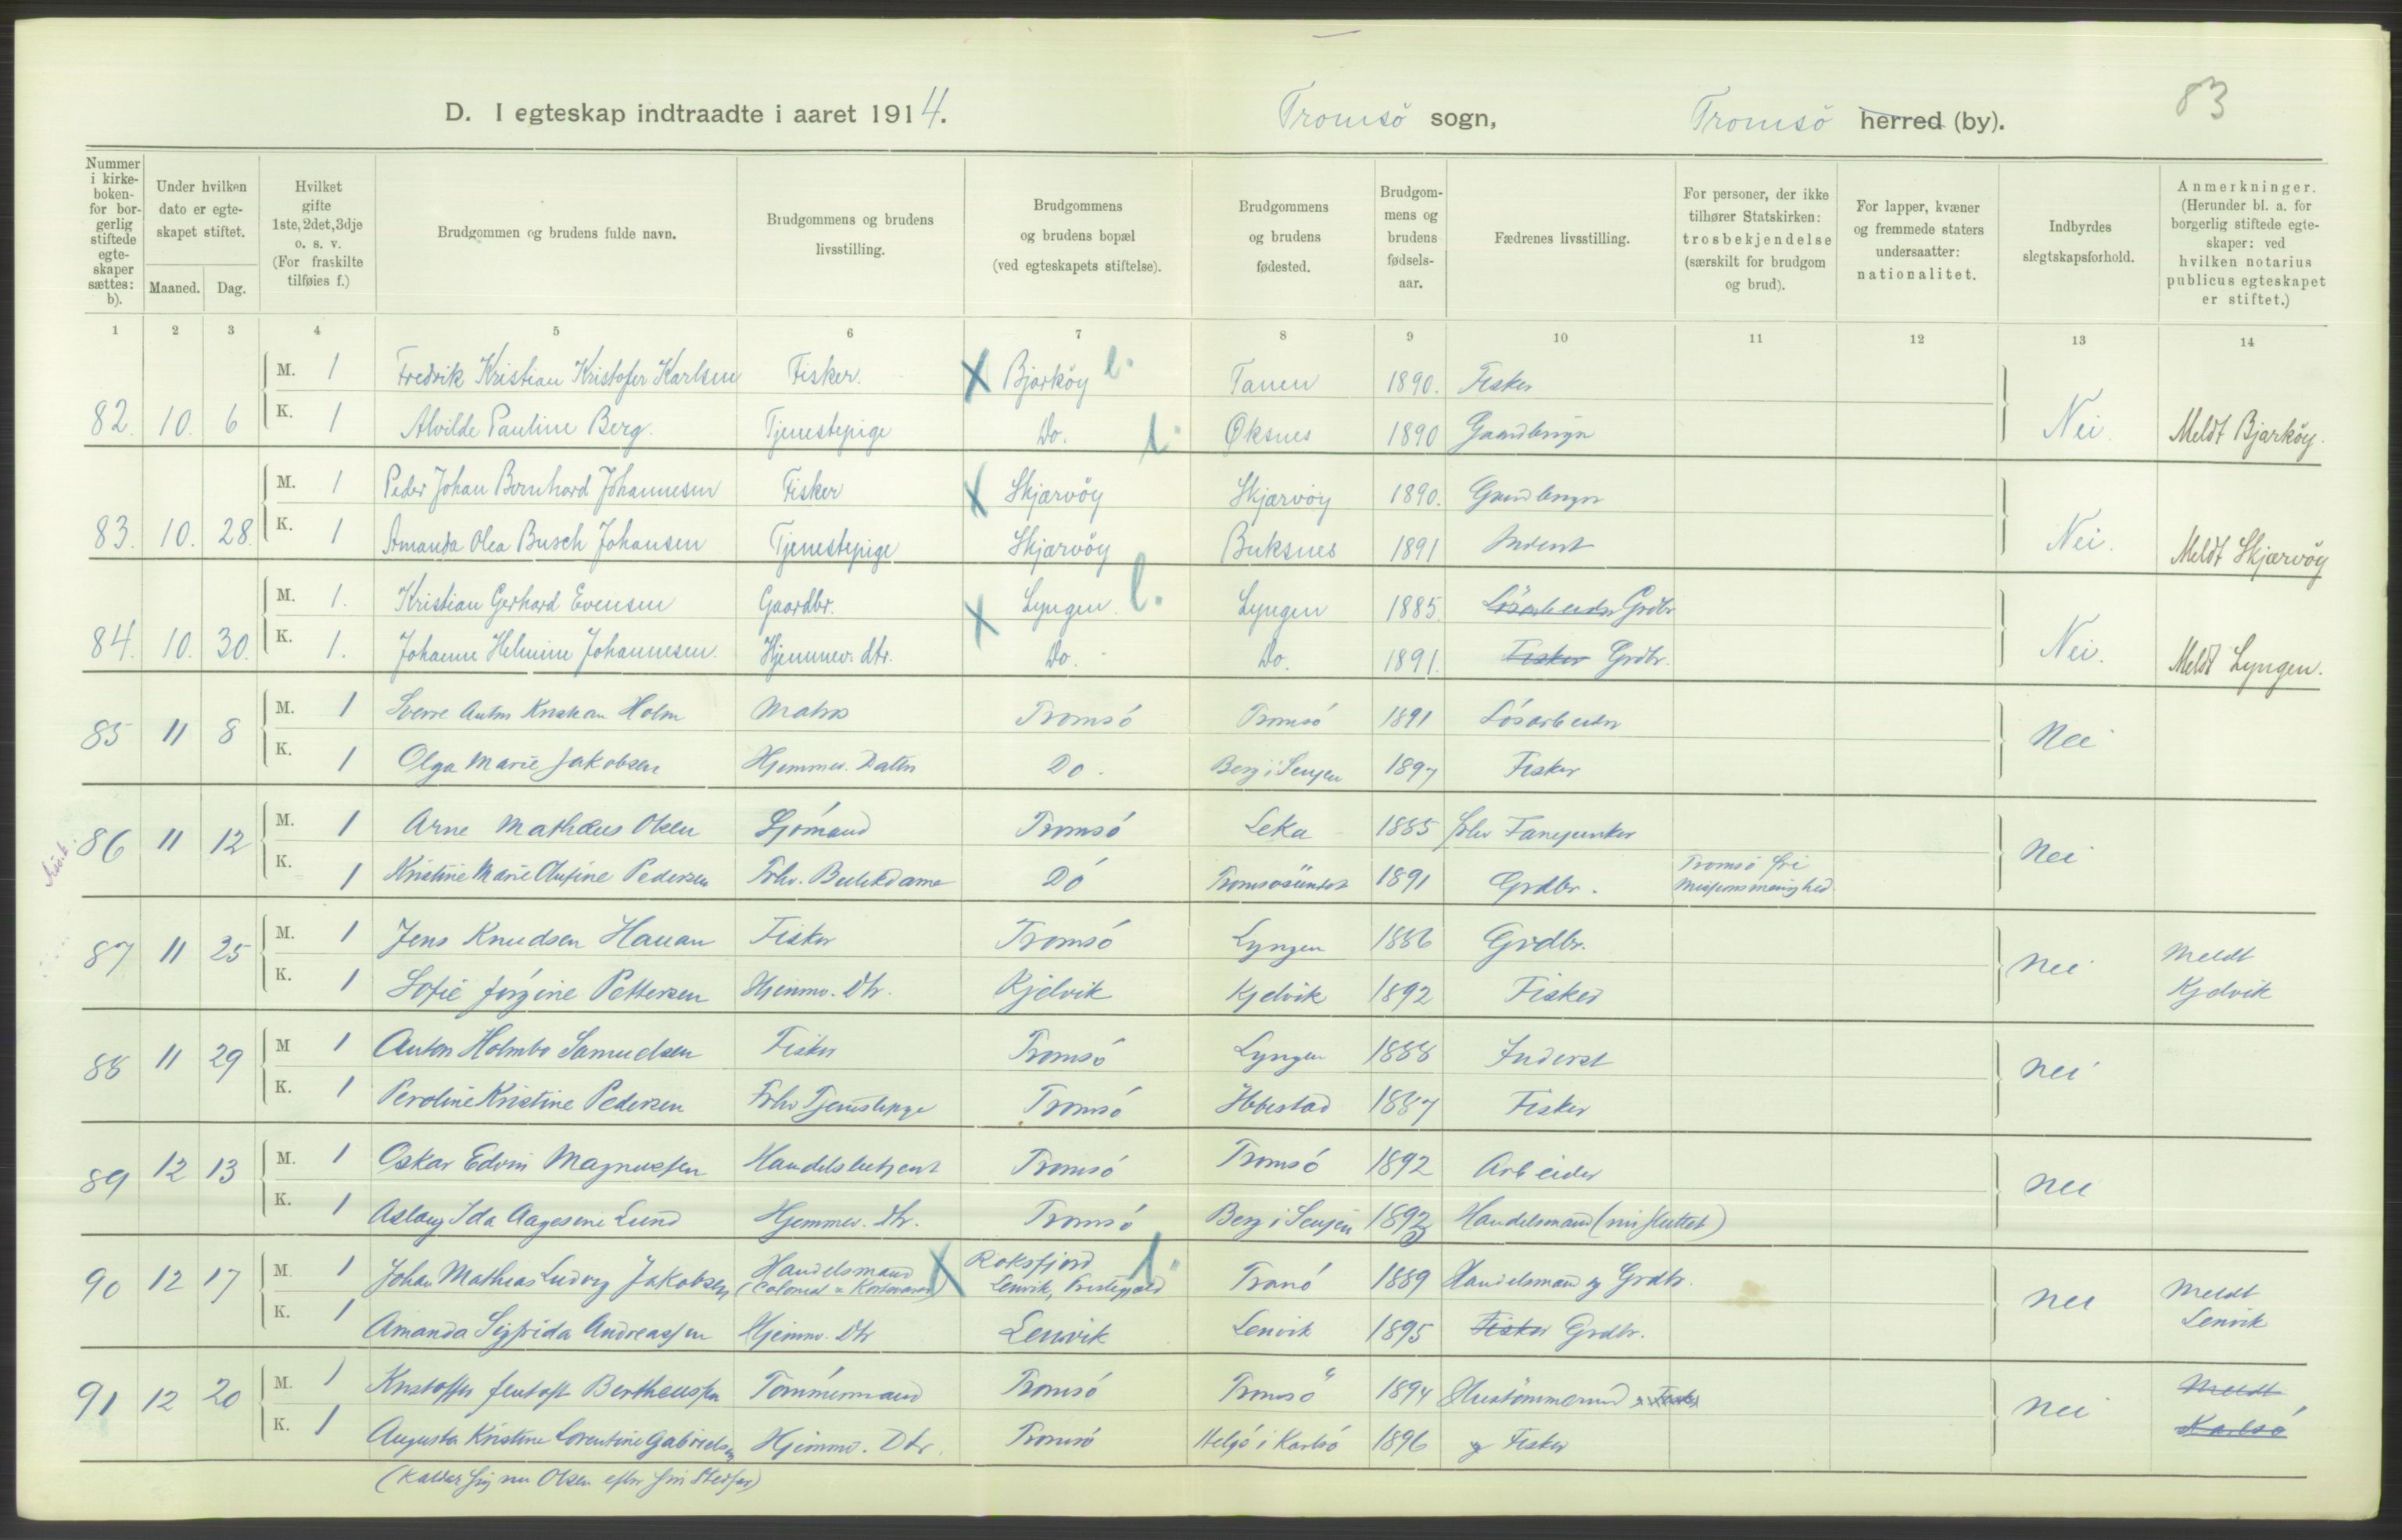 83
D. I egteskap indtraadte i aaret 1914. Tromsö sogn, Tromsö herred (by).
Nummer i kirke-boken- for bor-gerlig stiftede egte-skaper sættes: b).
Under hvilken dato er egte-skapet stiftet.
Maaned. Dag.
Hvilket gifte 1ste, 2det, 3dje o. s. v. (For fraskilte tilføies f.)
Brudgommen og brudens fulde navn.
Brudgommens og brudens livsstilling.
Brudgommens og brudens bopæl (ved egteskapets stiftelse).
Brudgommens og brudens fødested.
Brudgom-mens og brudens fødsels-aar.
Fædrenes livsstilling.
For personer, der ikke tilhører Statskirken: trosbekjendelse (særskilt for brudgom og brud).
For lapper, kvæner og fremmede staters undersaatter: nationalitet.
Indbyrdes slegtskapsforhold.
Anmerkninger. (Herunder bl. a. for borgerlig stiftede egte-skaper: ved hvilken notarius publicus egteskapet er stiftet.)
1 2 3 4 5 6 7 8 9 10 11 12 13 14
M. 1 Fredrik Kristian Kristofer Karlsen Fisker. X Bjarköy l. Tanen 1890. Fisker
82. 10. 6 K. 1 Alvilde Pauline Berg. Tjenestepige Do. l. Øksnes 1890 Gaardbruger Nei. Meldt Bjarköy.
M. 1 Peder Johan Bernhard Johannesen Fisker X Skjærvöy Skjærvöy 1890. Gaardbruger
83. 10. 28. K. 1 Amanda Olea Busch Johansen Tjenestepige Skjærvöy Buksnes 1891 Inderst Nei. Meldt Skjærvöy
M. 1. Kristian Gerhard Evensen Gaardbr. X Lyngen. l. Lyngen 1885. Lösarbeider Grdbr
84. 10. 30. K. 1. Johanne Helmine Johannesen. Hjemmev. dtr. Do. Do. 1891. Fisker Grdbr. Nei. Meldt Lyngen.
85 11 8 M. 1 Sverre Anton Kristian Holm Matros Tromsó Tromsó 1891 Lösarbeider Nei
K. 1 Olga Marie Jakobsen Hjemmev. Datter Do. Berg i Senjen 1897 Fisker
86 11 12 M. 1 Arne Mathæus Olsen Sjómand Tromsó Leka 1885 Nei
K. 1 Kristine Marie Olufine Pedersen Frhv. Butikdame Dó Tromsösundet 1891 Grdbr. Tromsó fri Missionsmenighed
87 11 25 M. 1 Jens Knudsen Hauan Fisker Tromsó Lyngen 1886 Grdbr. Nei Meldt Kjelvik
K. 1 Sofie Jørgine Pettersen Hjemmv. Dtr. Kjelvik Kjelvik 1892 Fisker
88 11 29 M 1 Anton Holmbo Samuelsen Fisker Tromsó Lyngen 1888 Inderst Nei
K. 1 Peroline Kristine Pedersen Frhv Tjenestepige Tromsó Ibbestad 1887 Fisker
89 12 13 M. 1 Oskar Edvin Magnussen Handelsbetjent Tromsó Tromsó 1892 Arbeider Nei
K. 1 Aslaug Ida Aagesine Lund Hjemmev. Dtr. Tromsó Berg i Senjen 1893 Handelsmand (nu sluttet)
90 12 17 M. 1 Johan Mathias Ludvig Jakobsen Handelsmand (Colonial & Kortevarer) X Roksfjord Lenvik, Prestegjæld l. Tranó 1889 Handelsmand og Grdbr. Nei Meldt Lenvik
K. 1 Amanda Sigfrida Andreassen Hjemmv. Dtr Lenvik Lenvik 1895 Fisker Grdbr.
91 12 20 M. 1 Kristoffer Jentoft Bertheussen Tømmermand Tromsó Tromsö 1894 Hustömmermand & Fisker Nei Meldt Karlsó
K. 1 Augusta Kristine Lorentine Gabrielsen Hjemmv. Dtr. Tromsó Helgó i Karlsó 1896 Fisker
(Kalder sig nu Olsen efter sin Stedfar)